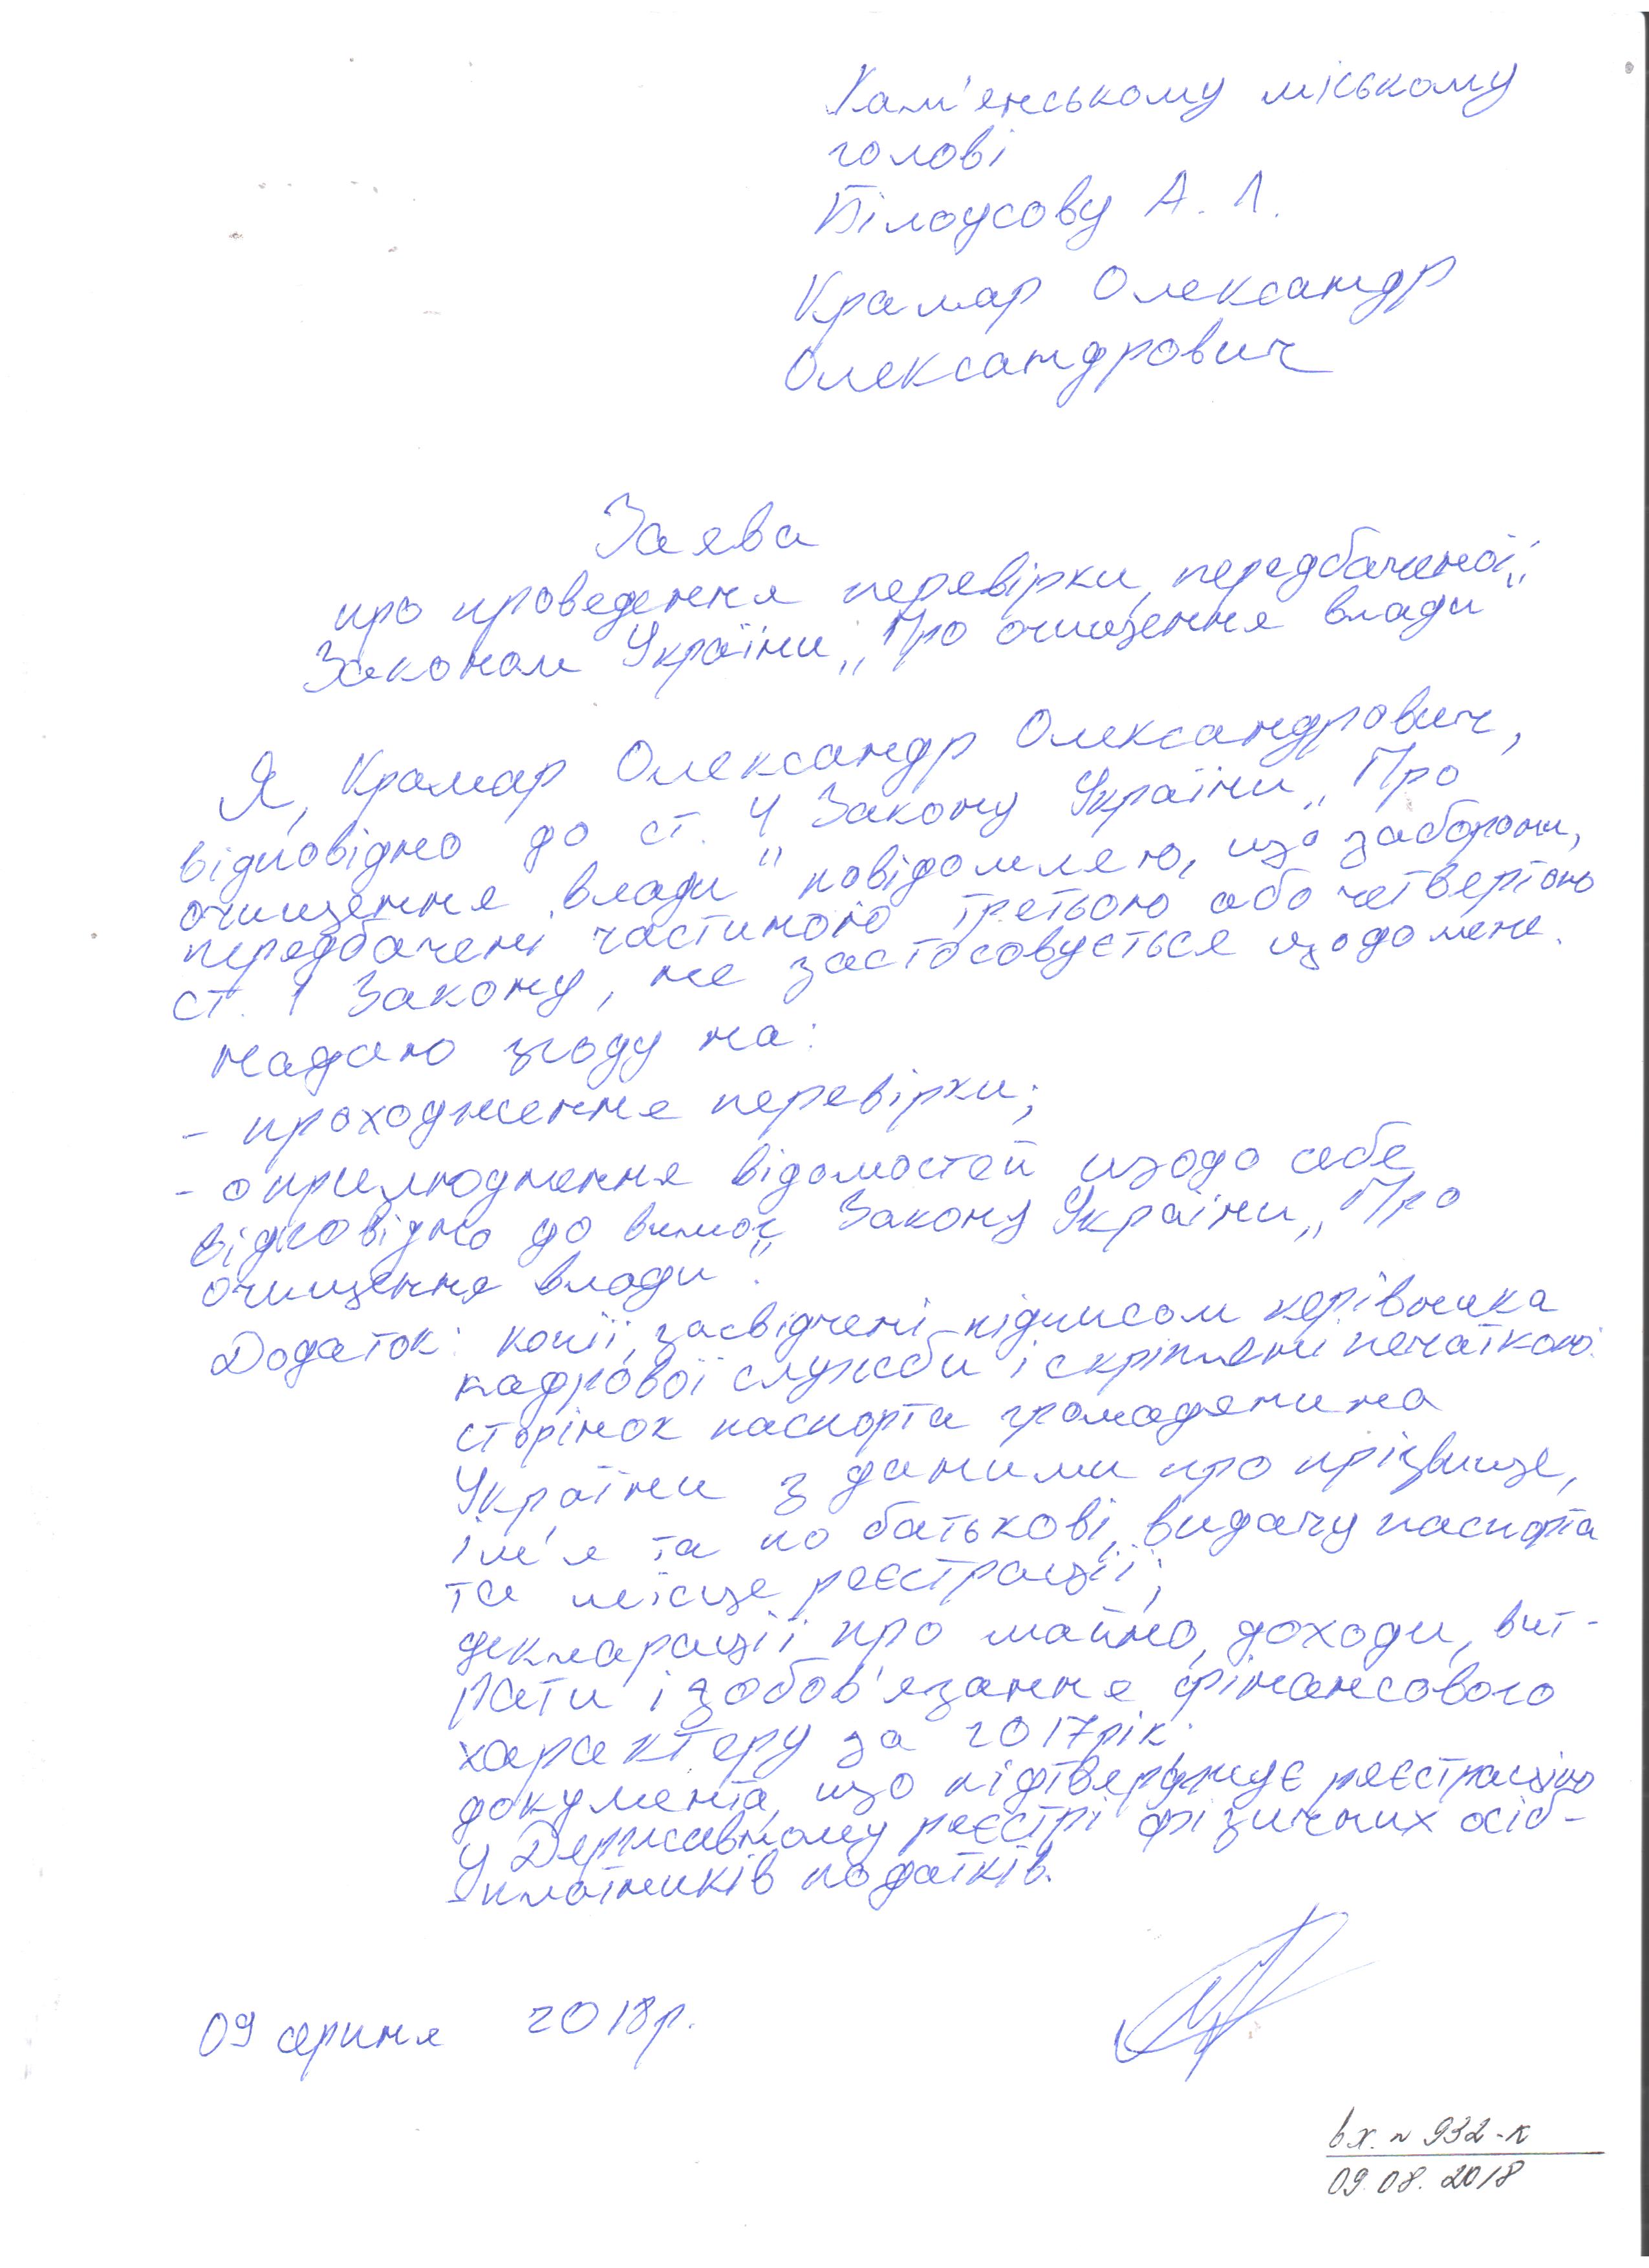 Кам'янському міському
голові
Білоусову А. Л.
Крамар Олександр
Олександрович
Заява
про проведення перевірки, передбаченої
Законом України „Про очищення влади"
Я, Крамар Олександр Олександрович,
відповідно до ст. 4 Закону України „Про
очищення влади" повідомляю, що заборони,
передбачені частиною третьою або четвертою
ст. 1 Закону, не застосовується щодо мене.
Надаю згоду на:
- проходження перевірки;
- оприлюднення відомостей щодо себе
відповідно до вимог Закону України „Про
очищення влади".
Додаток: копії, засвідчені підписом керівника
кадрової служби і скріплені печаткою:
сторінок паспорта громадянина
України з даними про прізвище,
ім'я та по батькові, видачу паспорта
та місце реєстрації;
декларації про майно, доходи, вит-
рати і зобов'язання фінансового
характеру за 2017рік;
документа, що підтверджує реєстрацію
у Державному реєстрі фізичних осіб-
платників податків.
09 серпня 2018р.
вх. № 932-к
09.08.2018